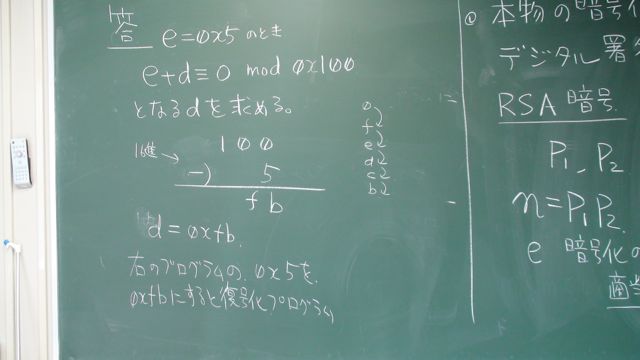 答 e=0x5のとき
e+d≡0 mod 0x100
となるdを求める。
16進→ 100
-) 5
fb
d=0xfb.
右のプログラムの、0x5を、
0xfbにすると復号化プログラム
0
f
e
d
c
b
本物の暗号化
デジタル署名
RSA 暗号
P₁, P₂
n=P₁P₂
e 暗号化の
適当